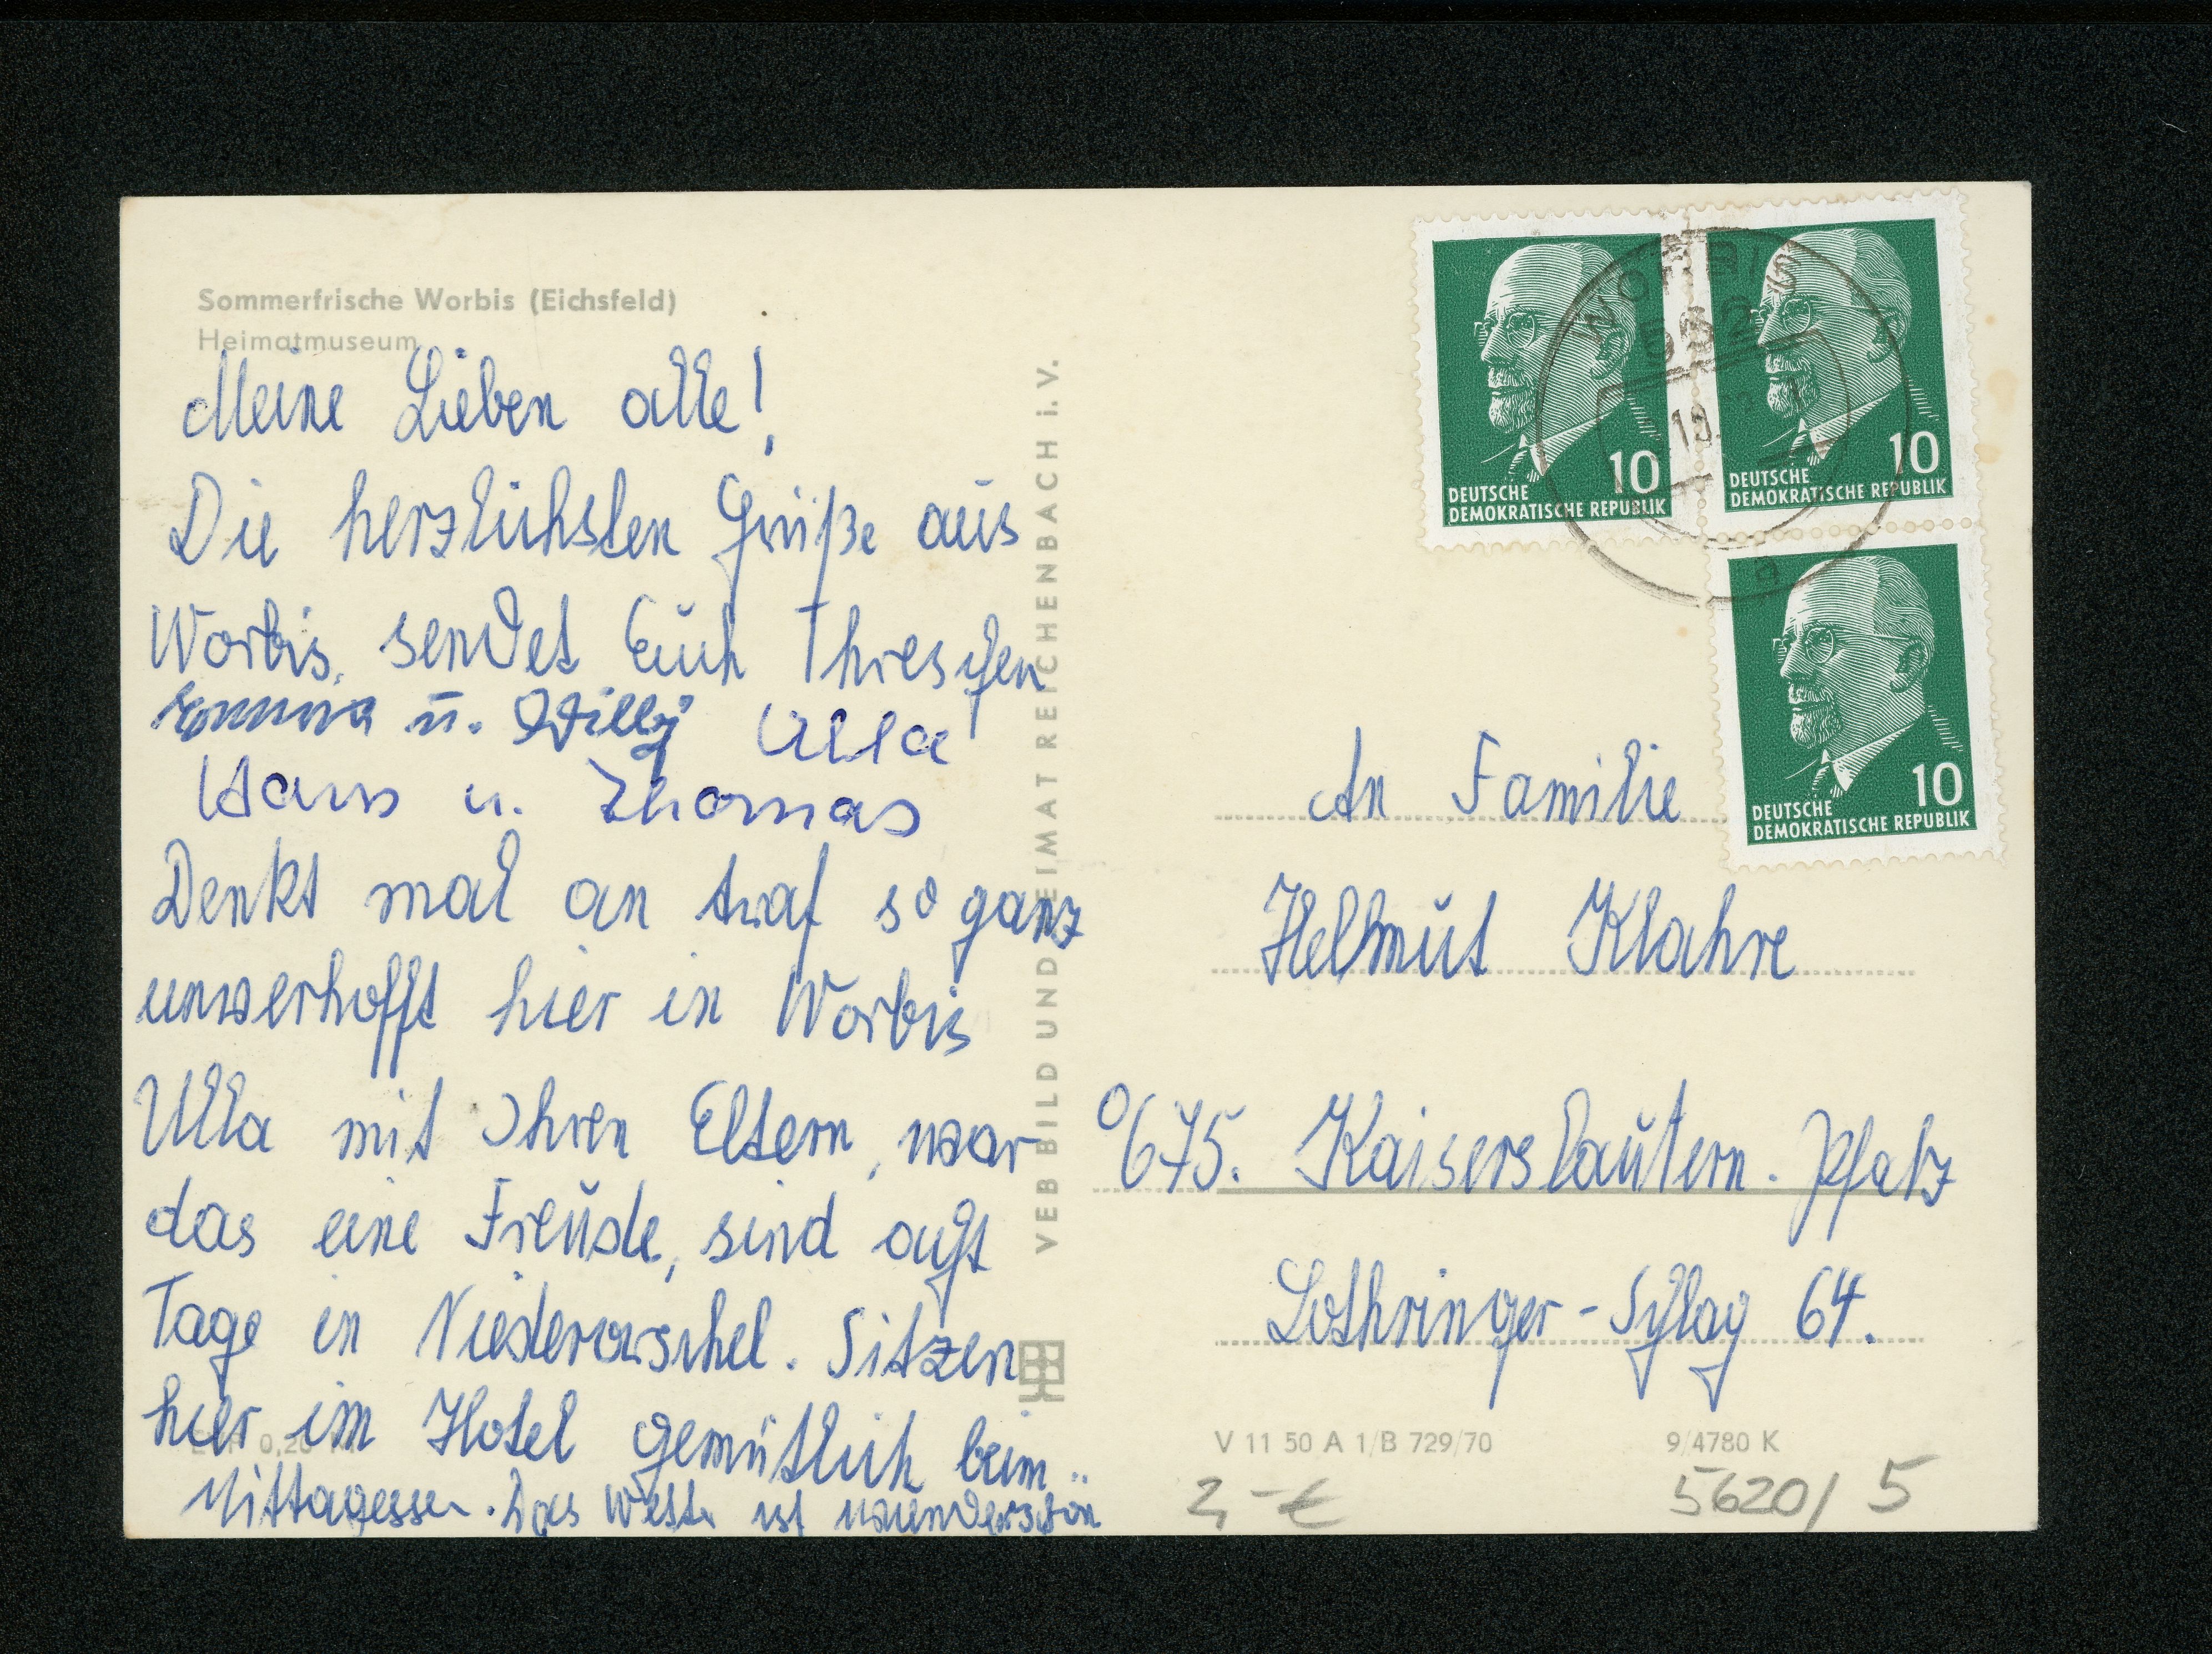 Sommerfrische Worbis (Eichsfeld)
Heimatmuseum
Meine Lieben alle!
Die herzlichsten Grüße aus
Worbis, sendet Euch Threschen
Emma u. Willy Ulla
Hans u. Thomas
Denkt mal an traf so ganz
unverhofft hier in Worbis
Ulla mit Ihren Eltern, war
das eine Freude, sind
Tage in Niederorschel. Sitzen
hier im Hotel gemütlich beim
Mittagessen. Das Wetter ist wunderschön
VEB BILD UND HEIMAT REICHENBACH i. V.
WORBIS
562
10
DEUTSCHE
DEMOKRATISCHE REPUBLIK
10
DEUTSCHE
DEMOKRATISCHE REPUBLIK
10
DEUTSCHE
DEMOKRATISCHE REPUBLIK
An Familie
Helmut Klahre
675. Kaiserslautern. Pfalz
Lothringer - 64.
V 11 50 A 1/B 729/70
9/4780 K
2,-€
5620/5